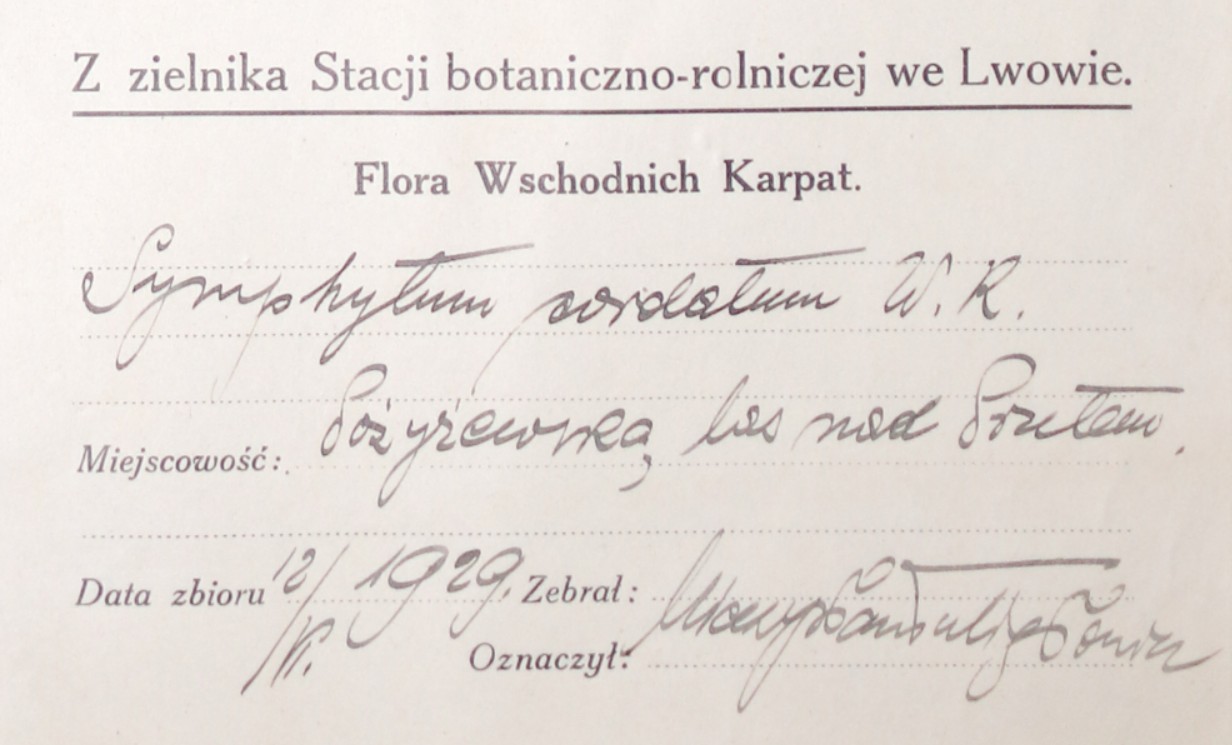 Z zielnika Stacji botaniczno-rolniczej we Lwowie.
Flora Wschodnich Karpat.
Symphytum cordatum W. K.
Miejscowość: Pożyżewska, las nad Prutem.
Data zbioru 12/VI. 1929. Zebrał:
Oznaczył: